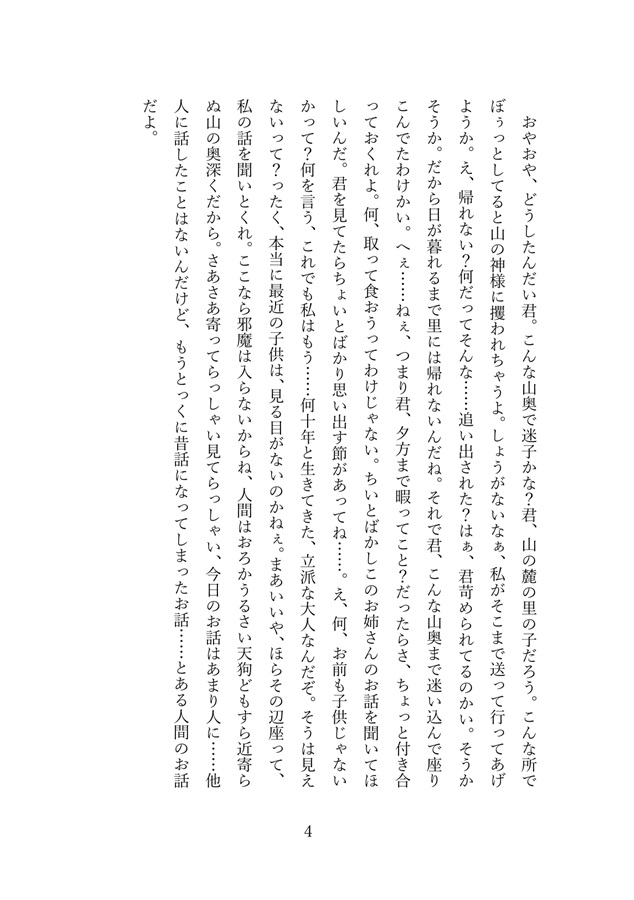 おやおや、どうしたんだい君。こんな山奥で迷子かな？君、山の麓の里の子だろう。こんな所で
ぼぅっとしてると山の神様に攫われちゃうよ。しょうがないなぁ、私がそこまで送って行ってあげ
ようか。え、帰れない？何だってそんな……追い出された？はぁ、君苛められてるのかい。そうか
そうか。だから日が暮れるまで里には帰れないんだね。それで君、こんな山奥まで迷い込んで座り
こんでたわけかい。へぇ……ねぇ、つまり君、夕方まで暇ってこと？だったらさ、ちょっと付き合
っておくれよ。何、取って食おうってわけじゃない。ちいとばかしこのお姉さんのお話を聞いてほ
しいんだ。君を見てたらちょいとばかり思い出す節があってね……。え、何、お前も子供じゃない
かって？何を言う、これでも私はもう……何十年と生きてきた、立派な大人なんだぞ。そうは見え
ないって？ったく、本当に最近の子供は、見る目がないのかねぇ。まあいいや、ほらその辺座って、
私の話を聞いとくれ。ここなら邪魔は入らないからね、人間はおろかうるさい天狗どもすら近寄ら
ぬ山の奥深くだから。さあさあ寄ってらっしゃい見てらっしゃい、今日のお話はあまり人に……他
人に話したことはないんだけど、もうとっくに昔話になってしまったお話……とある人間のお話
だよ。
4